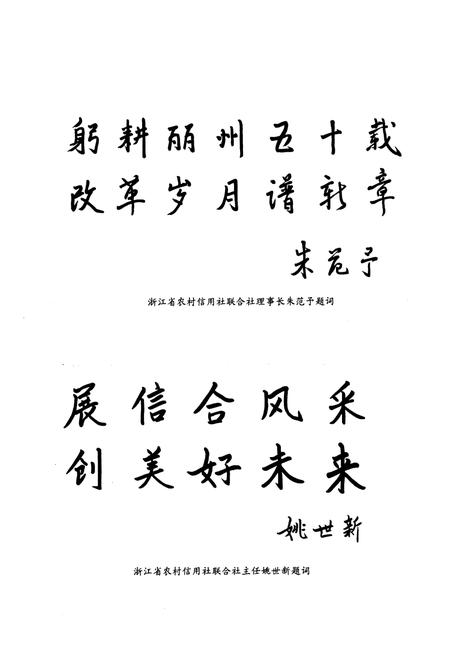 躬耕丽州五十载
改革岁月谱新章
朱范予
浙江省农村信用社联合社理事长朱范予题词
展信合风采
创美好未来
姚世新
浙江省农村信用社联合社主任姚世新题词